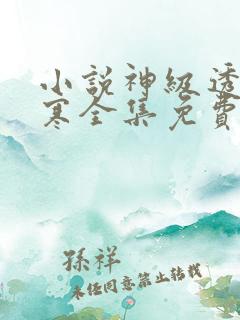 小說神級透
寒全集免費
孫祥
未經同意禁止轉載